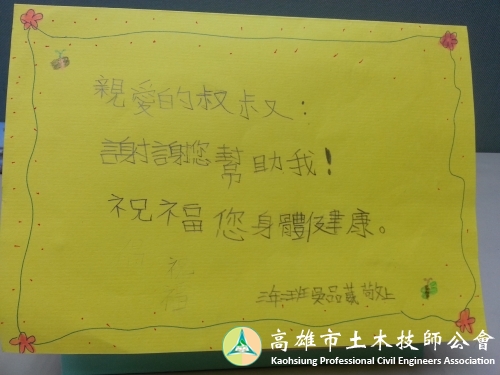 親愛的叔叔:
謝謝您幫助我!
祝福您身體健康。
敬上
高雄市土木技師公會
Kaohsiung Professional Civil Engineers Association